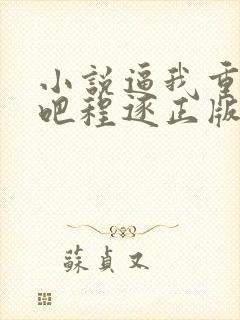 小說逼我重
吧程逐正版
蘇貞又